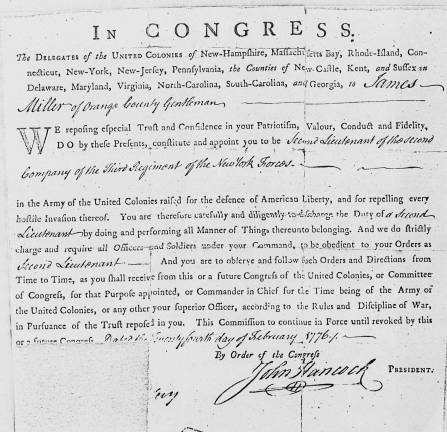 IN CONGRESS.
The DELEGATES of the UNITED COLONIES of New-Hampshire, Massachusetts Bay, Rhode-Island, Con-
necticut, New-York, New-Jersey, Pennsylvania, the Counties of New-Castle, Kent, and Sussex in
Delaware, Maryland, Virginia, North-Carolina, South-Carolina, and Georgia, to James
Miller of Orange County Gentleman
WE reposing especial Trust and Confidence in your Patriotism, Valour, Conduct and Fidelity,
DO by these Presents, constitute and appoint you to be Second Lieutenant of the second
Company of the Third Regiment of the New York Forces.
in the Army of the United Colonies raised for the defence of American Liberty, and for repelling every
hostile Invasion thereof. You are therefore carefully and diligently to discharge the Duty of a Second
Lieutenant by doing and performing all Manner of Things thereunto belonging. And we do strictly
charge and require all Officers and Soldiers under your Command, to be obedient to your Orders as
Second Lieutenant And you are to observe and follow such Orders and Directions from
Time to Time, as you shall receive from this or a future Congress of the United Colonies, or Committee
of Congress, for that Purpose appointed, or Commander in Chief for the Time being of the Army of
the United Colonies, or any other your superior Officer, according to the Rules and Discipline of War,
in Pursuance of the Trust reposed in you. This Commission to continue in Force until revoked by this
or a future Congress. Dated the Twenty fourth day of February 1776.
By Order of the Congress
John Hancock PRESIDENT.